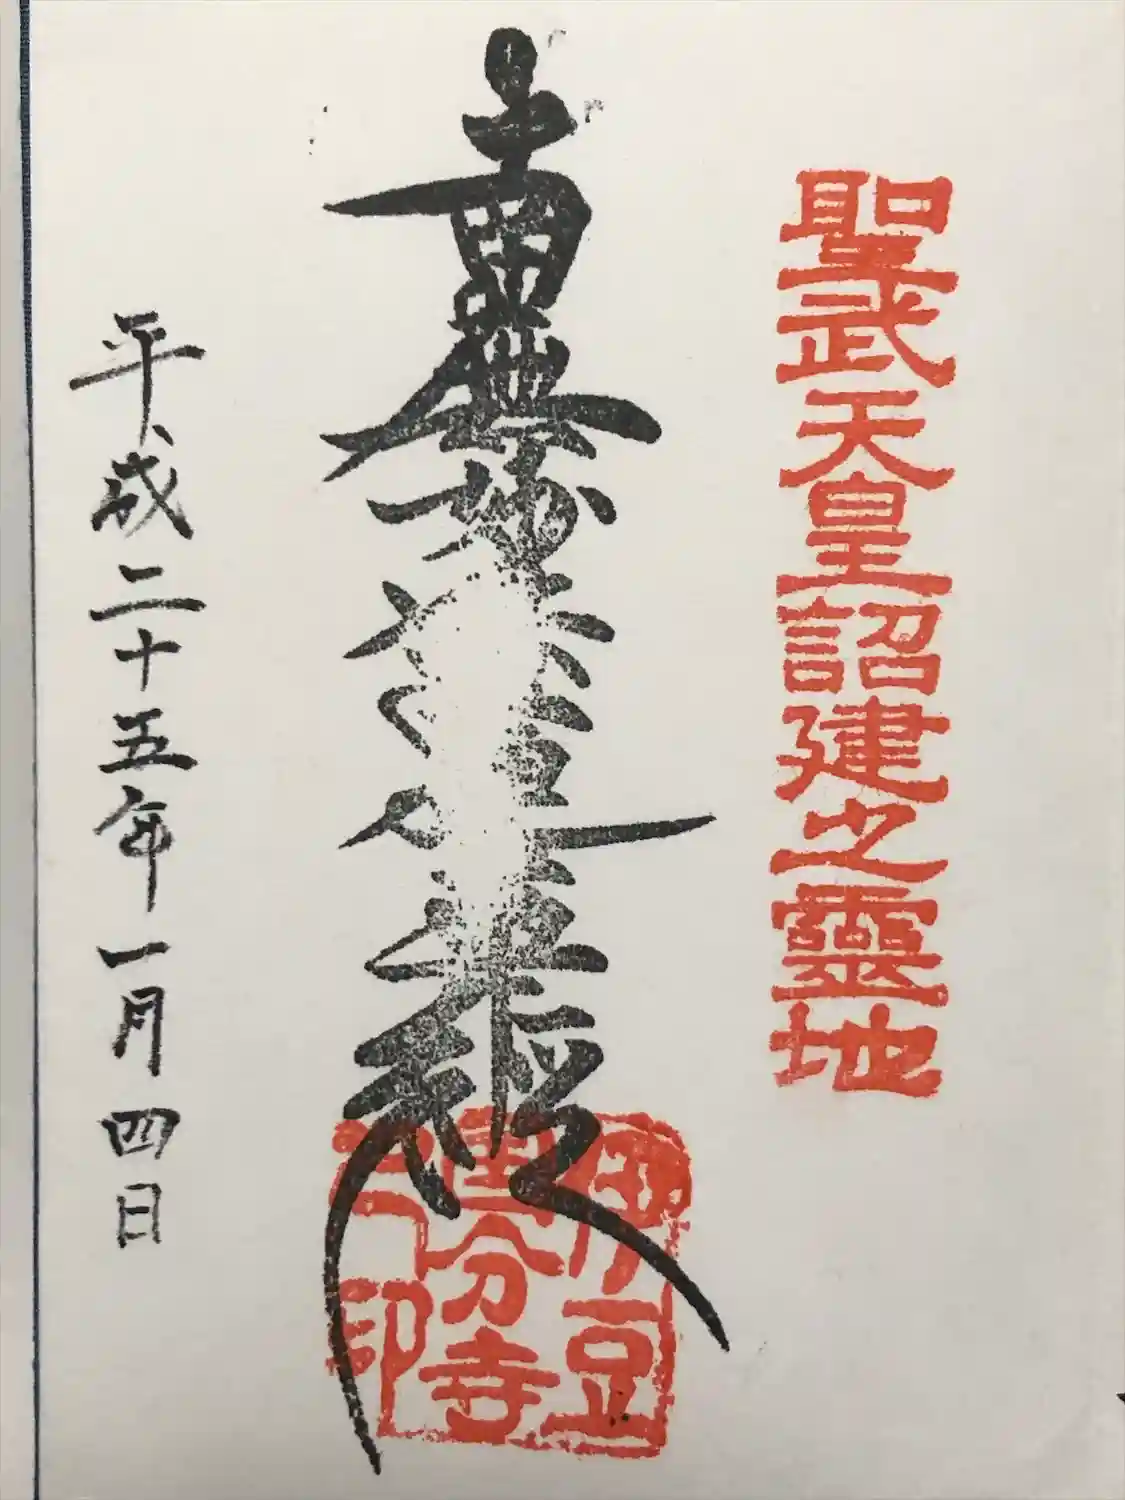 聖武天皇詔建之靈地
南無妙法蓮華經
伊豆
國分寺
之印
平成二十五年一月四日